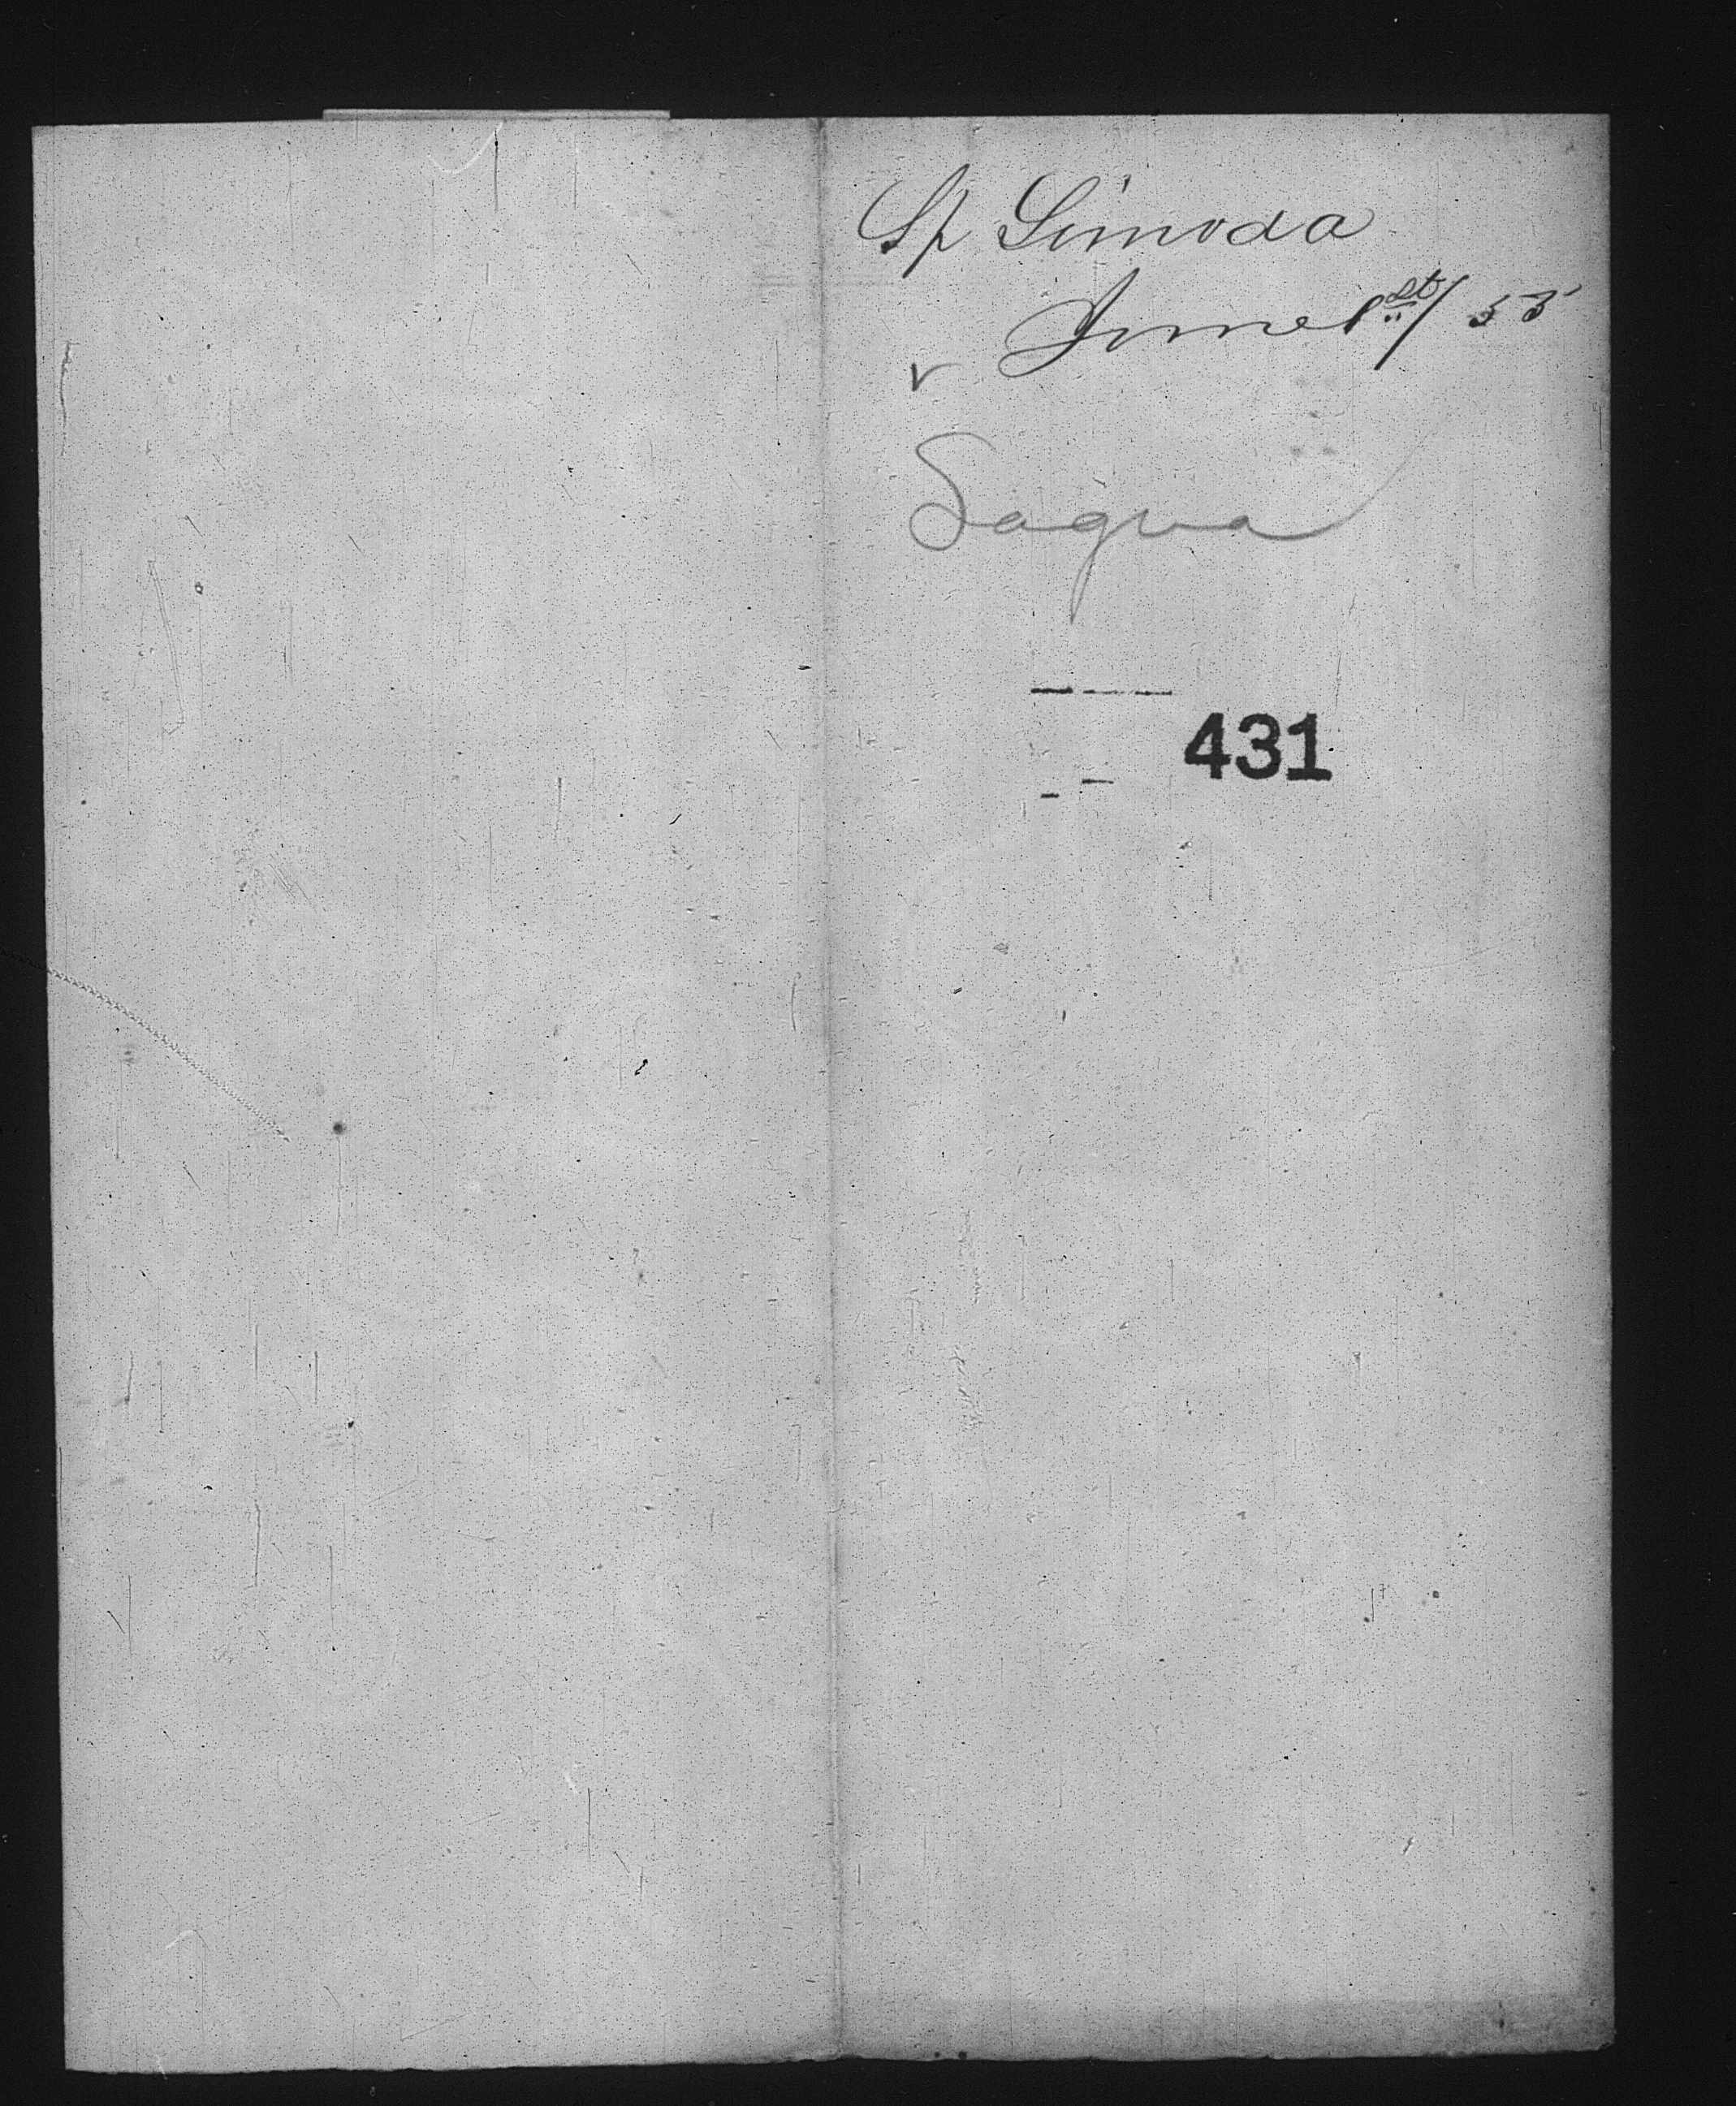 Sp Simoda
June 1st/55
v
Sagua
431